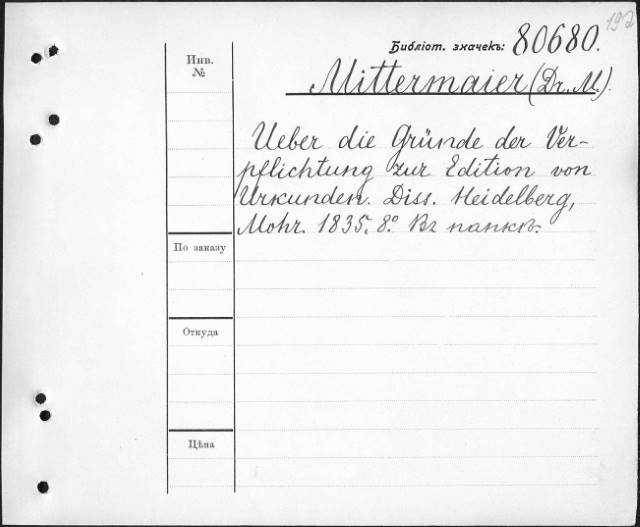 Библіот. значекъ: 80680.
Инв.
№
Mittermaier (Dr. M.).
Ueber die Gründe der Ver-
pflichtung zur Edition von
Urkunden. Diss. Heidelberg,
Mohr. 1835. 8º Въ папкѣ.
По заказу
Откуда
Цѣна